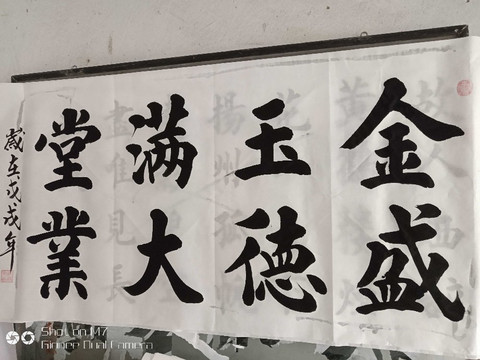 金玉满堂
盛德大業
歲在戊戌年
Shot on M7
Gionee Dual Camera